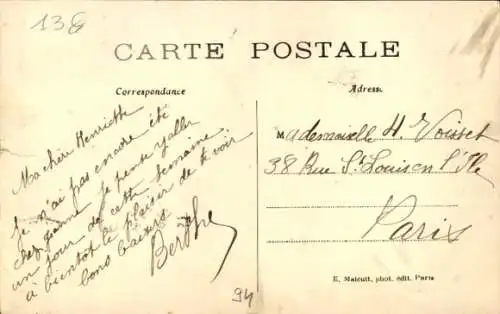 138
CARTE POSTALE
Correspondance
Ma chère Henriette
Je n'ai pas encore été
chez Jeanne je pense y aller
un jour de cette semaine
à bientôt le plaisir de te voir
bons baisers
Berthe
94
Adresse
Mademoiselle H. Voisset
38 Rue St Louis en l'Ile
Paris
E. Malcuit, phot. édit. Paris